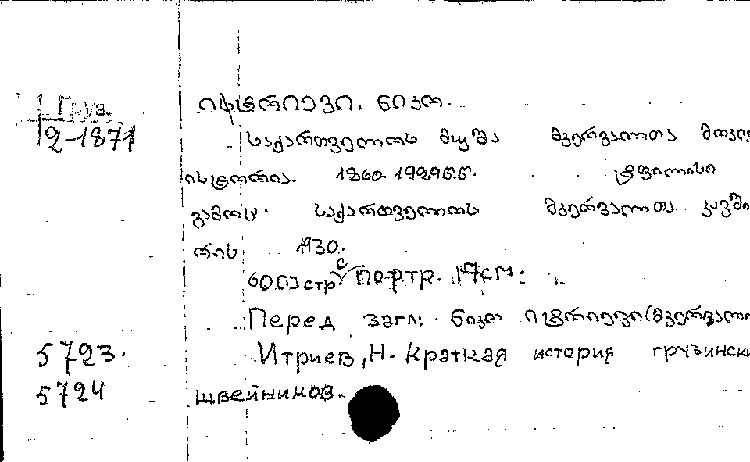 Груз.
2-1871
იტრიევი, ნიკო.
საქართველოს მუშა მკერვალთა მოკლე
ისტორია. 1860-1929წ.წ. ტფილისი
გამოც. საქართველოს მკერვალთა კავში
რის 1930.
60 стр с портр. 17см.
Перед загл: ნიკო იტრიევი (მკერვალი
5723. Итриев, Н. Краткая история грузинск
5724 швейников.